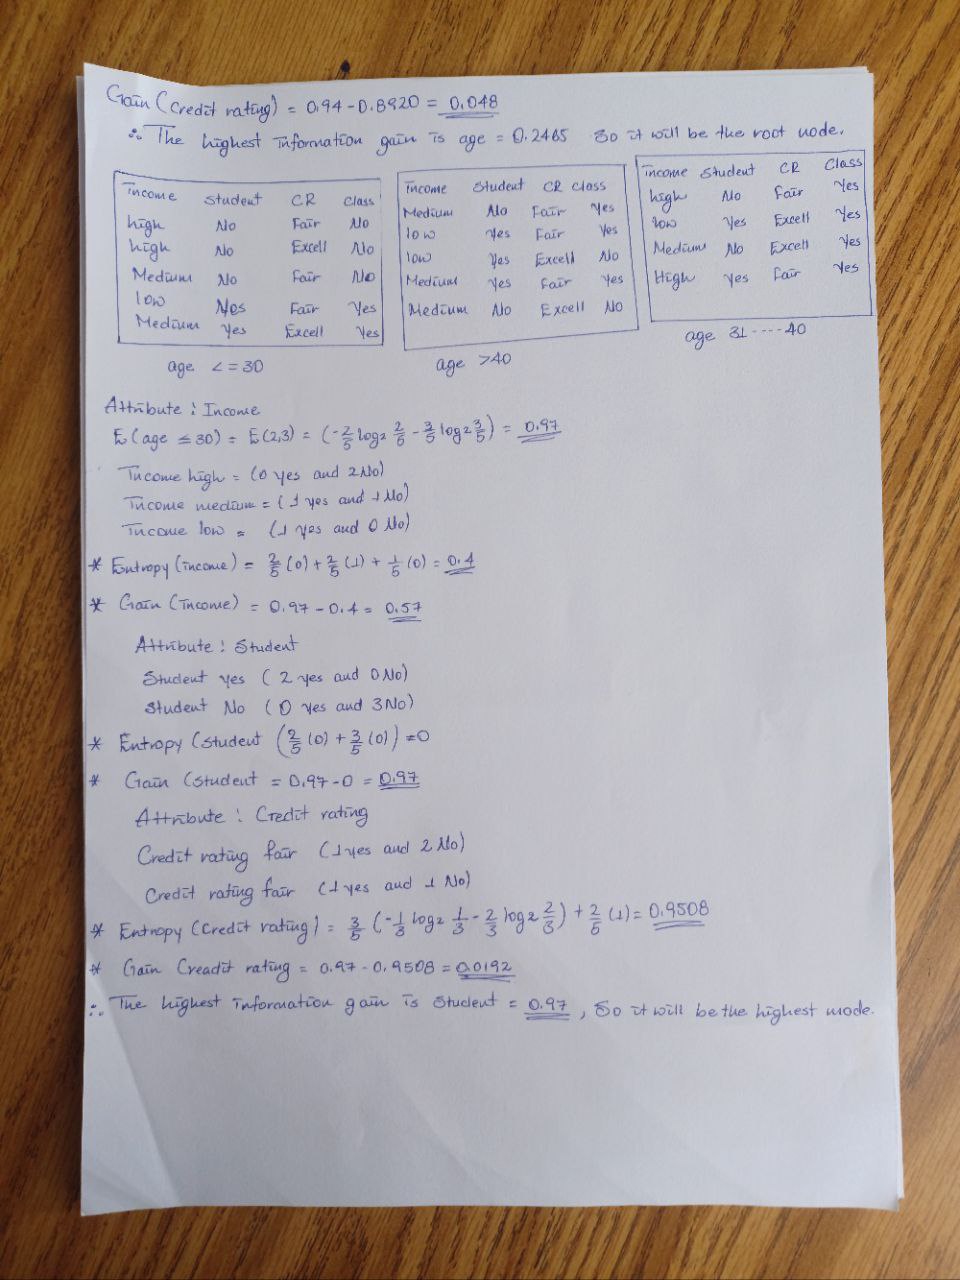 Gain (Credit rating) = 0.94 - 0.8920 = 0.048
∴ The highest information gain is age = 0.2465 So it will be the root node.
Income Student CR Class
high No Fair No
high No Excell No
Medium No Fair No
low Yes Fair Yes
Medium Yes Excell Yes
age <= 30
Income Student CR Class
Medium No Fair Yes
low Yes Fair Yes
low Yes Excell No
Medium Yes Fair Yes
Medium No Excell No
age >40
Income Student CR Class
high No Fair Yes
low Yes Excell Yes
Medium No Excell Yes
High Yes Fair Yes
age 31----40
Attribute : Income
E(age ≤ 30) = E(2,3) = (-2/5 log2 2/5 - 3/5 log2 3/5) = 0.97
Income high = (0 yes and 2 No)
Income medium = (1 yes and 1 No)
Income low = (1 yes and 0 No)
* Entropy (income) = 2/5 (0) + 2/5 (1) + 1/5 (0) = 0.4
* Gain (income) = 0.97 - 0.4 = 0.57
Attribute : Student
Student yes (2 yes and 0 No)
Student No (0 yes and 3 No)
* Entropy (Student (2/5 (0) + 3/5 (0)) = 0
* Gain (Student = 0.97 - 0 = 0.97
Attribute : Credit rating
Credit rating fair (1 yes and 2 No)
Credit rating fair (1 yes and 1 No)
* Entropy (Credit rating) = 3/5 (-1/3 log2 1/3 - 2/3 log2 2/3) + 2/5 (1) = 0.9508
* Gain Creadit rating = 0.97 - 0.9508 = 0.0192
∴ The highest information gain is Student = 0.97, So it will be the highest mode.